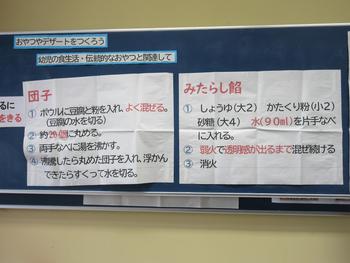 おやつやデザートをつくろう
幼児の食生活・伝統的なおやつと関連して
るに
をきる
団子
① ボウルに豆腐と粉を入れ、よく混ぜる。
（豆腐の水を切る）
② 約20個に丸める。
③ 両手なべに湯を沸かす。
④ 沸騰したら丸めた団子を入れ、浮かん
できたらすくって水を切る。
みたらし餡
① しょうゆ（大２） かたくり粉（小２）
砂糖（大４） 水（９０ml）を片手なべ
に入れる。
② 弱火で透明感が出るまで混ぜ続ける
③ 消火